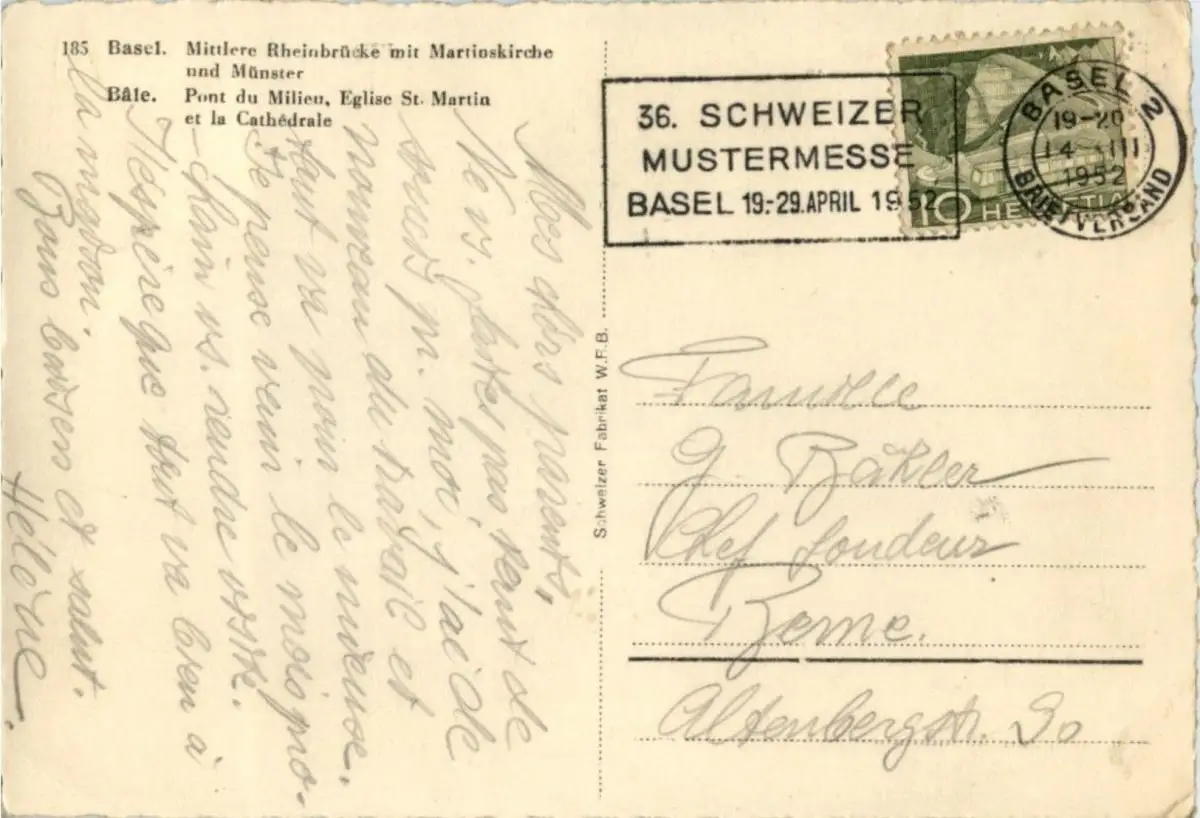 185 Basel. Mittlere Rheinbrücke mit Martinskirche
und Münster
Bâle. Pont du Milieu, Eglise St. Martin
et la Cathédrale
36. SCHWEIZER
MUSTERMESSE
BASEL 19.-29. APRIL 1952
BASEL 2
19-20
14. III
1952
BRIEFVERSAND
10 HELVETIA
Schweizer Fabrikat W.F.B.
Mes chers parents,
Ne vs. faites pas tant de
soucis pr. moi, j'ai de
nouveau du travail et
tout va pour le mieux.
Je pense venir le mois pro-
chain vs. rendre visite.
J'éspère que tout va bien à
la maison.
Bons baisers et salut.
Hélène.
Famille
G. Bähler
Chef
Berne.
Altenbergstr. 30